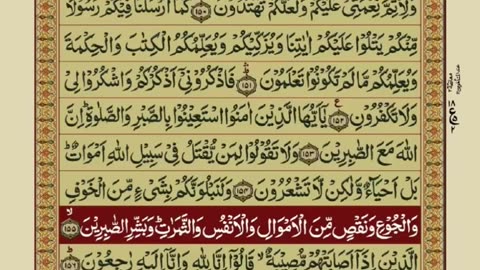 وَلِاُتِمَّ نِعْمَتِیْ عَلَیْكُمْ وَلَعَلَّكُمْ تَهْتَدُوْنَ ﴿۱۵۰﴾ كَمَاۤ اَرْسَلْنَا فِیْكُمْ رَسُوْلًا
مِّنْكُمْ یَتْلُوْا عَلَیْكُمْ اٰیٰتِنَا وَیُزَكِّیْكُمْ وَیُعَلِّمُكُمُ الْكِتٰبَ وَالْحِكْمَةَ
وَیُعَلِّمُكُمْ مَّا لَمْ تَكُوْنُوْا تَعْلَمُوْنَ ﴿۱۵۱﴾ فَاذْكُرُوْنِیْۤ اَذْكُرْكُمْ وَاشْكُرُوْا لِیْ
وَلَا تَكْفُرُوْنِ ﴿۱۵۲﴾ یٰۤاَیُّهَا الَّذِیْنَ اٰمَنُوا اسْتَعِیْنُوْا بِالصَّبْرِ وَالصَّلٰوةِ ؕ اِنَّ
اللّٰهَ مَعَ الصّٰبِرِیْنَ ﴿۱۵۳﴾ وَلَا تَقُوْلُوْا لِمَنْ یُّقْتَلُ فِیْ سَبِیْلِ اللّٰهِ اَمْوَاتٌ ؕ
بَلْ اَحْیَآءٌ وَّلٰكِنْ لَّا تَشْعُرُوْنَ ﴿۱۵۴﴾ وَلَنَبْلُوَنَّكُمْ بِشَیْءٍ مِّنَ الْخَوْفِ
وَالْجُوْعِ وَنَقْصٍ مِّنَ الْاَمْوَالِ وَالْاَنْفُسِ وَالثَّمَرٰتِ ؕ وَبَشِّرِ الصّٰبِرِیْنَ ﴿۱۵۵﴾
الَّذِیْنَ اِذَاۤ اَصَابَتْهُمْ مُّصِیْبَةٌ ۙ قَالُوْۤا اِنَّا لِلّٰهِ وَاِنَّاۤ اِلَیْهِ رٰجِعُوْنَ ﴿۱۵۶﴾